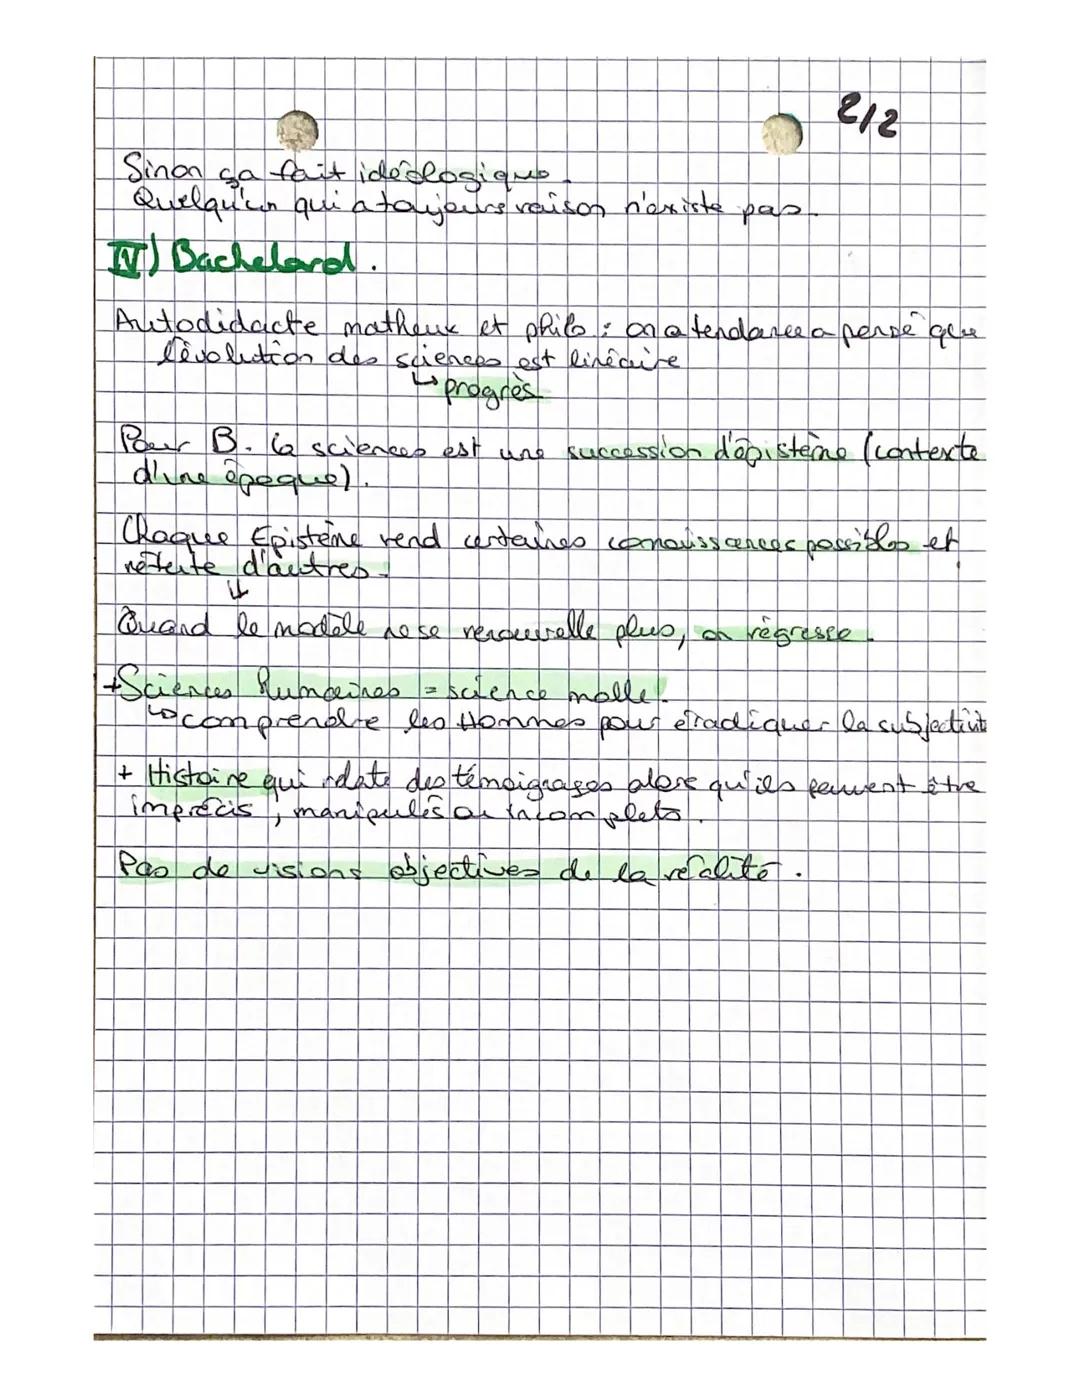 2/2
Sinon ça fait idéologique.
Quelqu'un qui a toujours raison n'existe pas.
IV) Bachelard.
Autodidacte matheux et philo : on a tendance a pensé que
l'évolution des sciences est linéaire
↳ progrès
Pour B. la sciences est une succession d'épistème (contexte
d'une époque).
Chaque Epistème rend certaines connaissances possibles et
réfute d'autres.
↓
Quand le modèle ne se renouvelle plus, on régresse.
+ Sciences Humaines = science molle!
↳ comprendre les Hommes pour éradiquer la subjectivit
+ Histoire qui relate des témoignages alors qu'ils peuvent être
imprécis, manipulés ou incomplets.
Pas de visions objectives de la réalité.